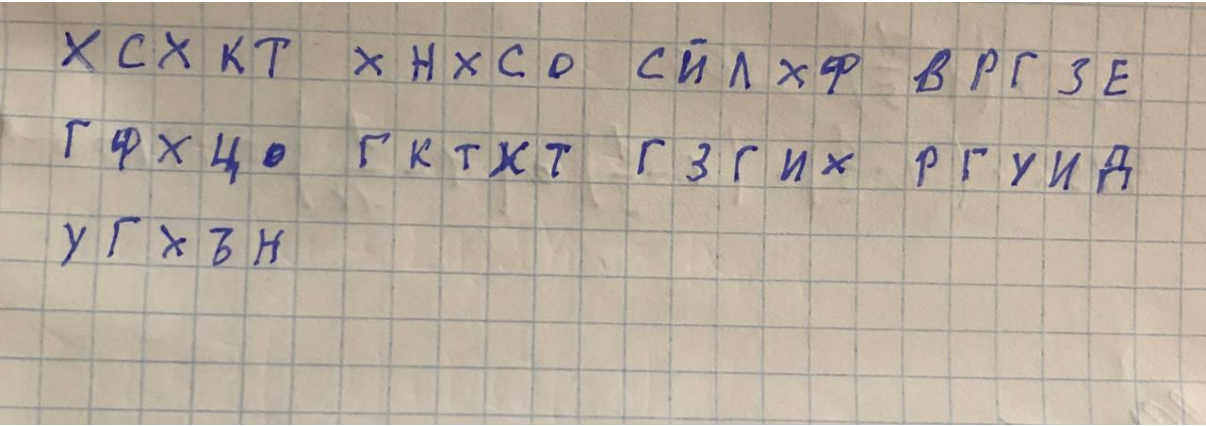 ХСХКТ ХНХСО СЙЛХФ ВРГЗЕ
ГФХЦО ГКТЖТ ГЗГИХ РГУИД
УГХЪН